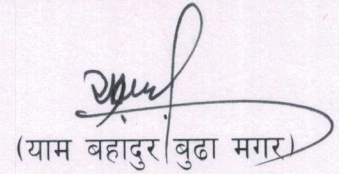 (याम बहादुर बुढा मगर)